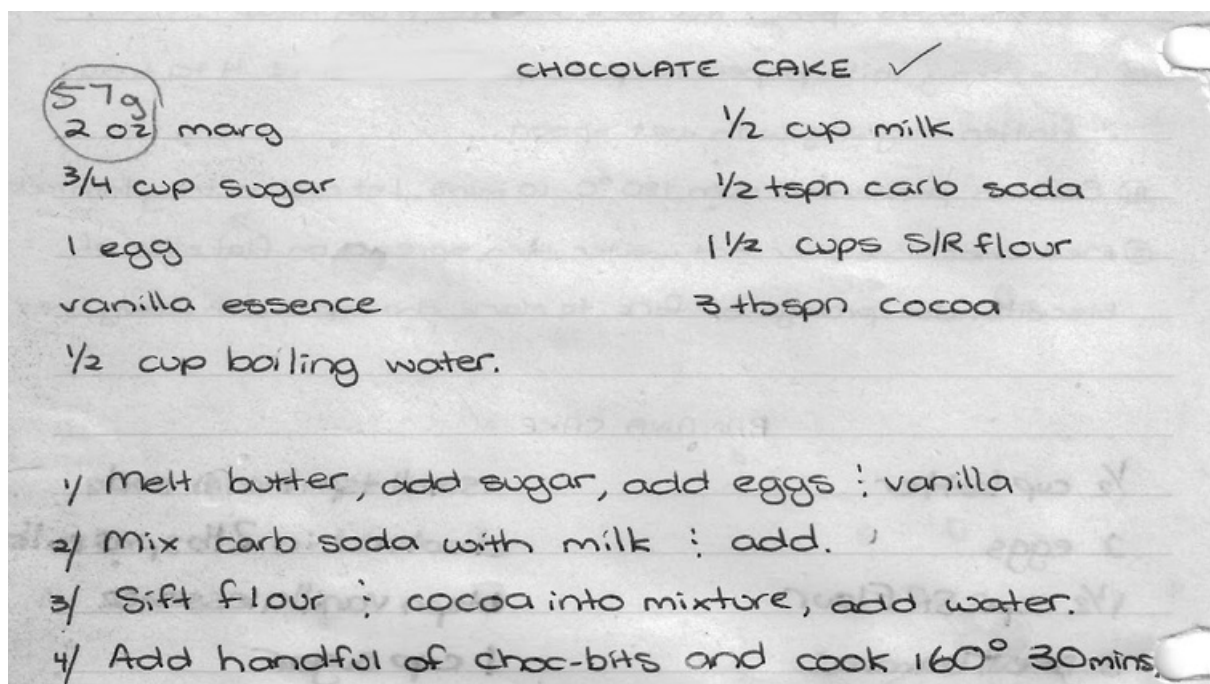 CHOCOLATE CAKE ✓
57g
2 oz marg
3/4 cup sugar
1 egg
vanilla essence
1/2 cup boiling water.
1/2 cup milk
1/2 tspn carb soda
1 1/2 cups S/R flour
3 tbspn cocoa
1/ Melt butter, add sugar, add eggs : vanilla
2/ Mix carb soda with milk : add.
3/ Sift flour : cocoa into mixture, add water.
4/ Add handful of choc-bits and cook 160° 30mins.